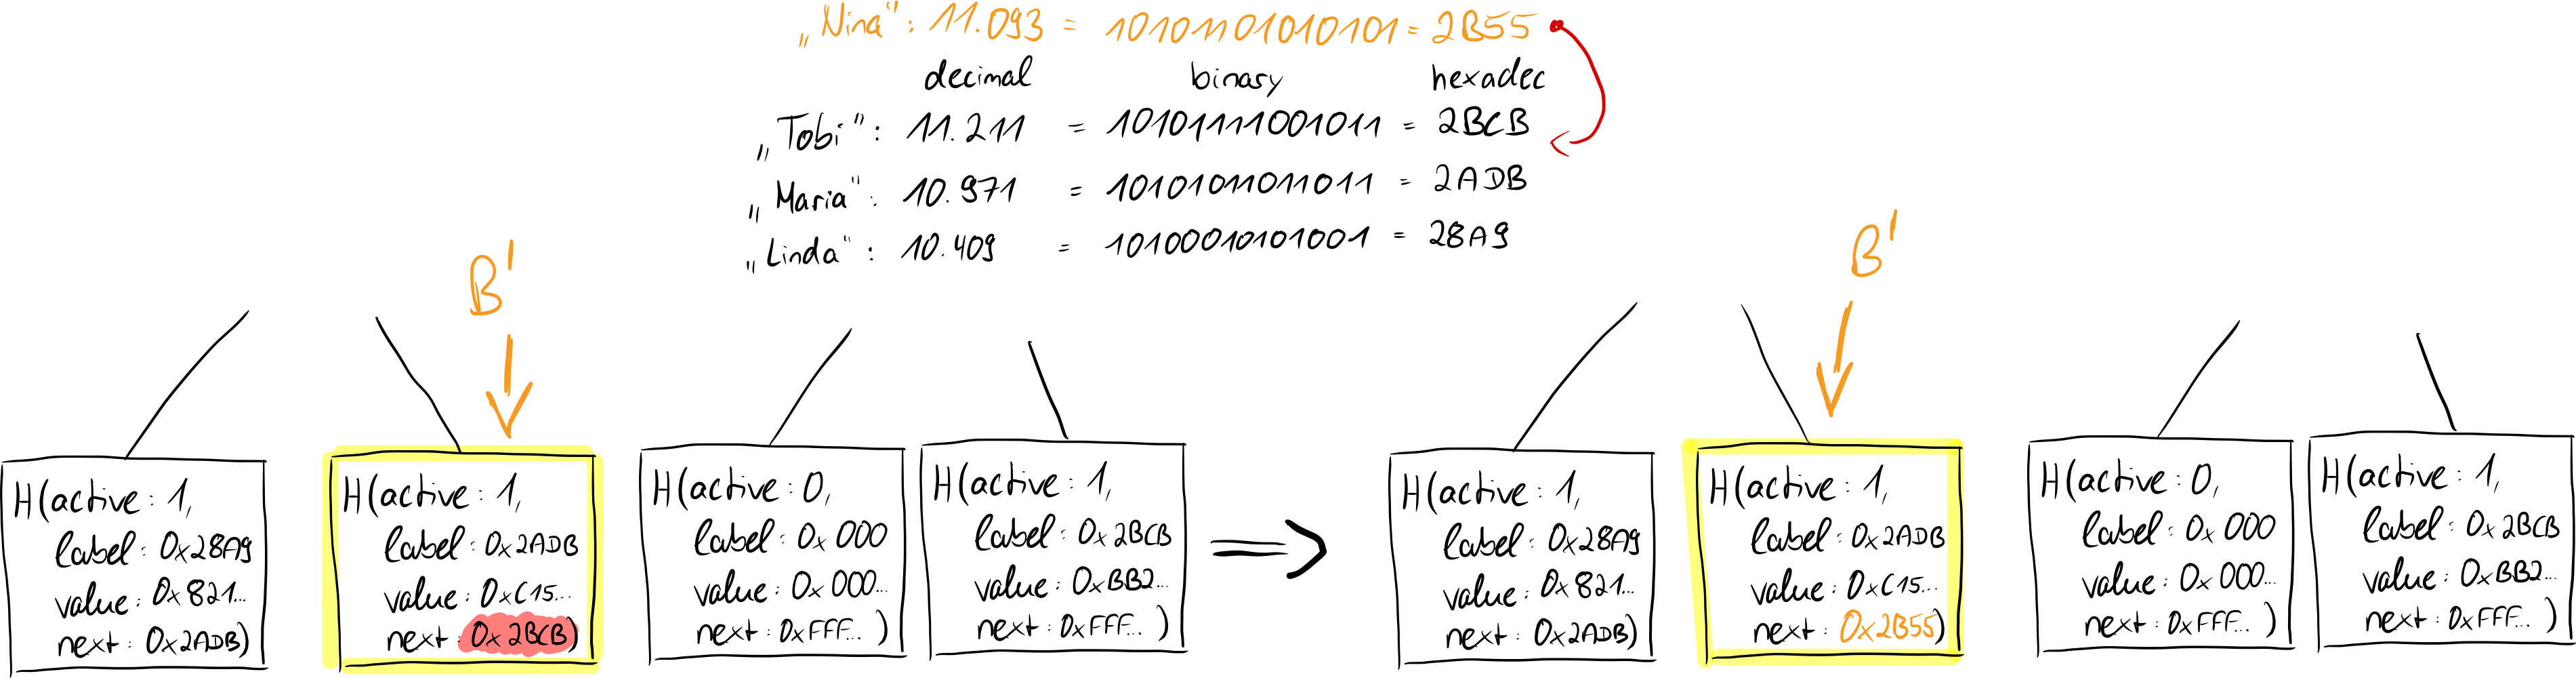 „Nina“: 11.093 = 10101101010101 = 2B55
decimal binary hexadec
„Tobi“: 11.211 = 10101111001011 = 2BCB
„Maria“: 10.971 = 10101011011011 = 2ADB
„Linda“: 10.409 = 10100010101001 = 28A9
B'
B'
H(active: 1,
label: 0x28A9
value: 0x821...
next: 0x2ADB)
H(active: 1,
label: 0x2ADB
value: 0xC15...
next: 0x2BCB)
H(active: 0,
label: 0x000
value: 0x000...
next: 0xFFF... )
H(active: 1,
label: 0x2BCB
value: 0xBB2...
next: 0xFFF... )
H(active: 1,
label: 0x28A9
value: 0x821...
next: 0x2ADB)
H(active: 1,
label: 0x2ADB
value: 0xC15...
next: 0x2B55)
H(active: 0,
label: 0x000
value: 0x000...
next: 0xFFF... )
H(active: 1,
label: 0x2BCB
value: 0xBB2...
next: 0xFFF... )